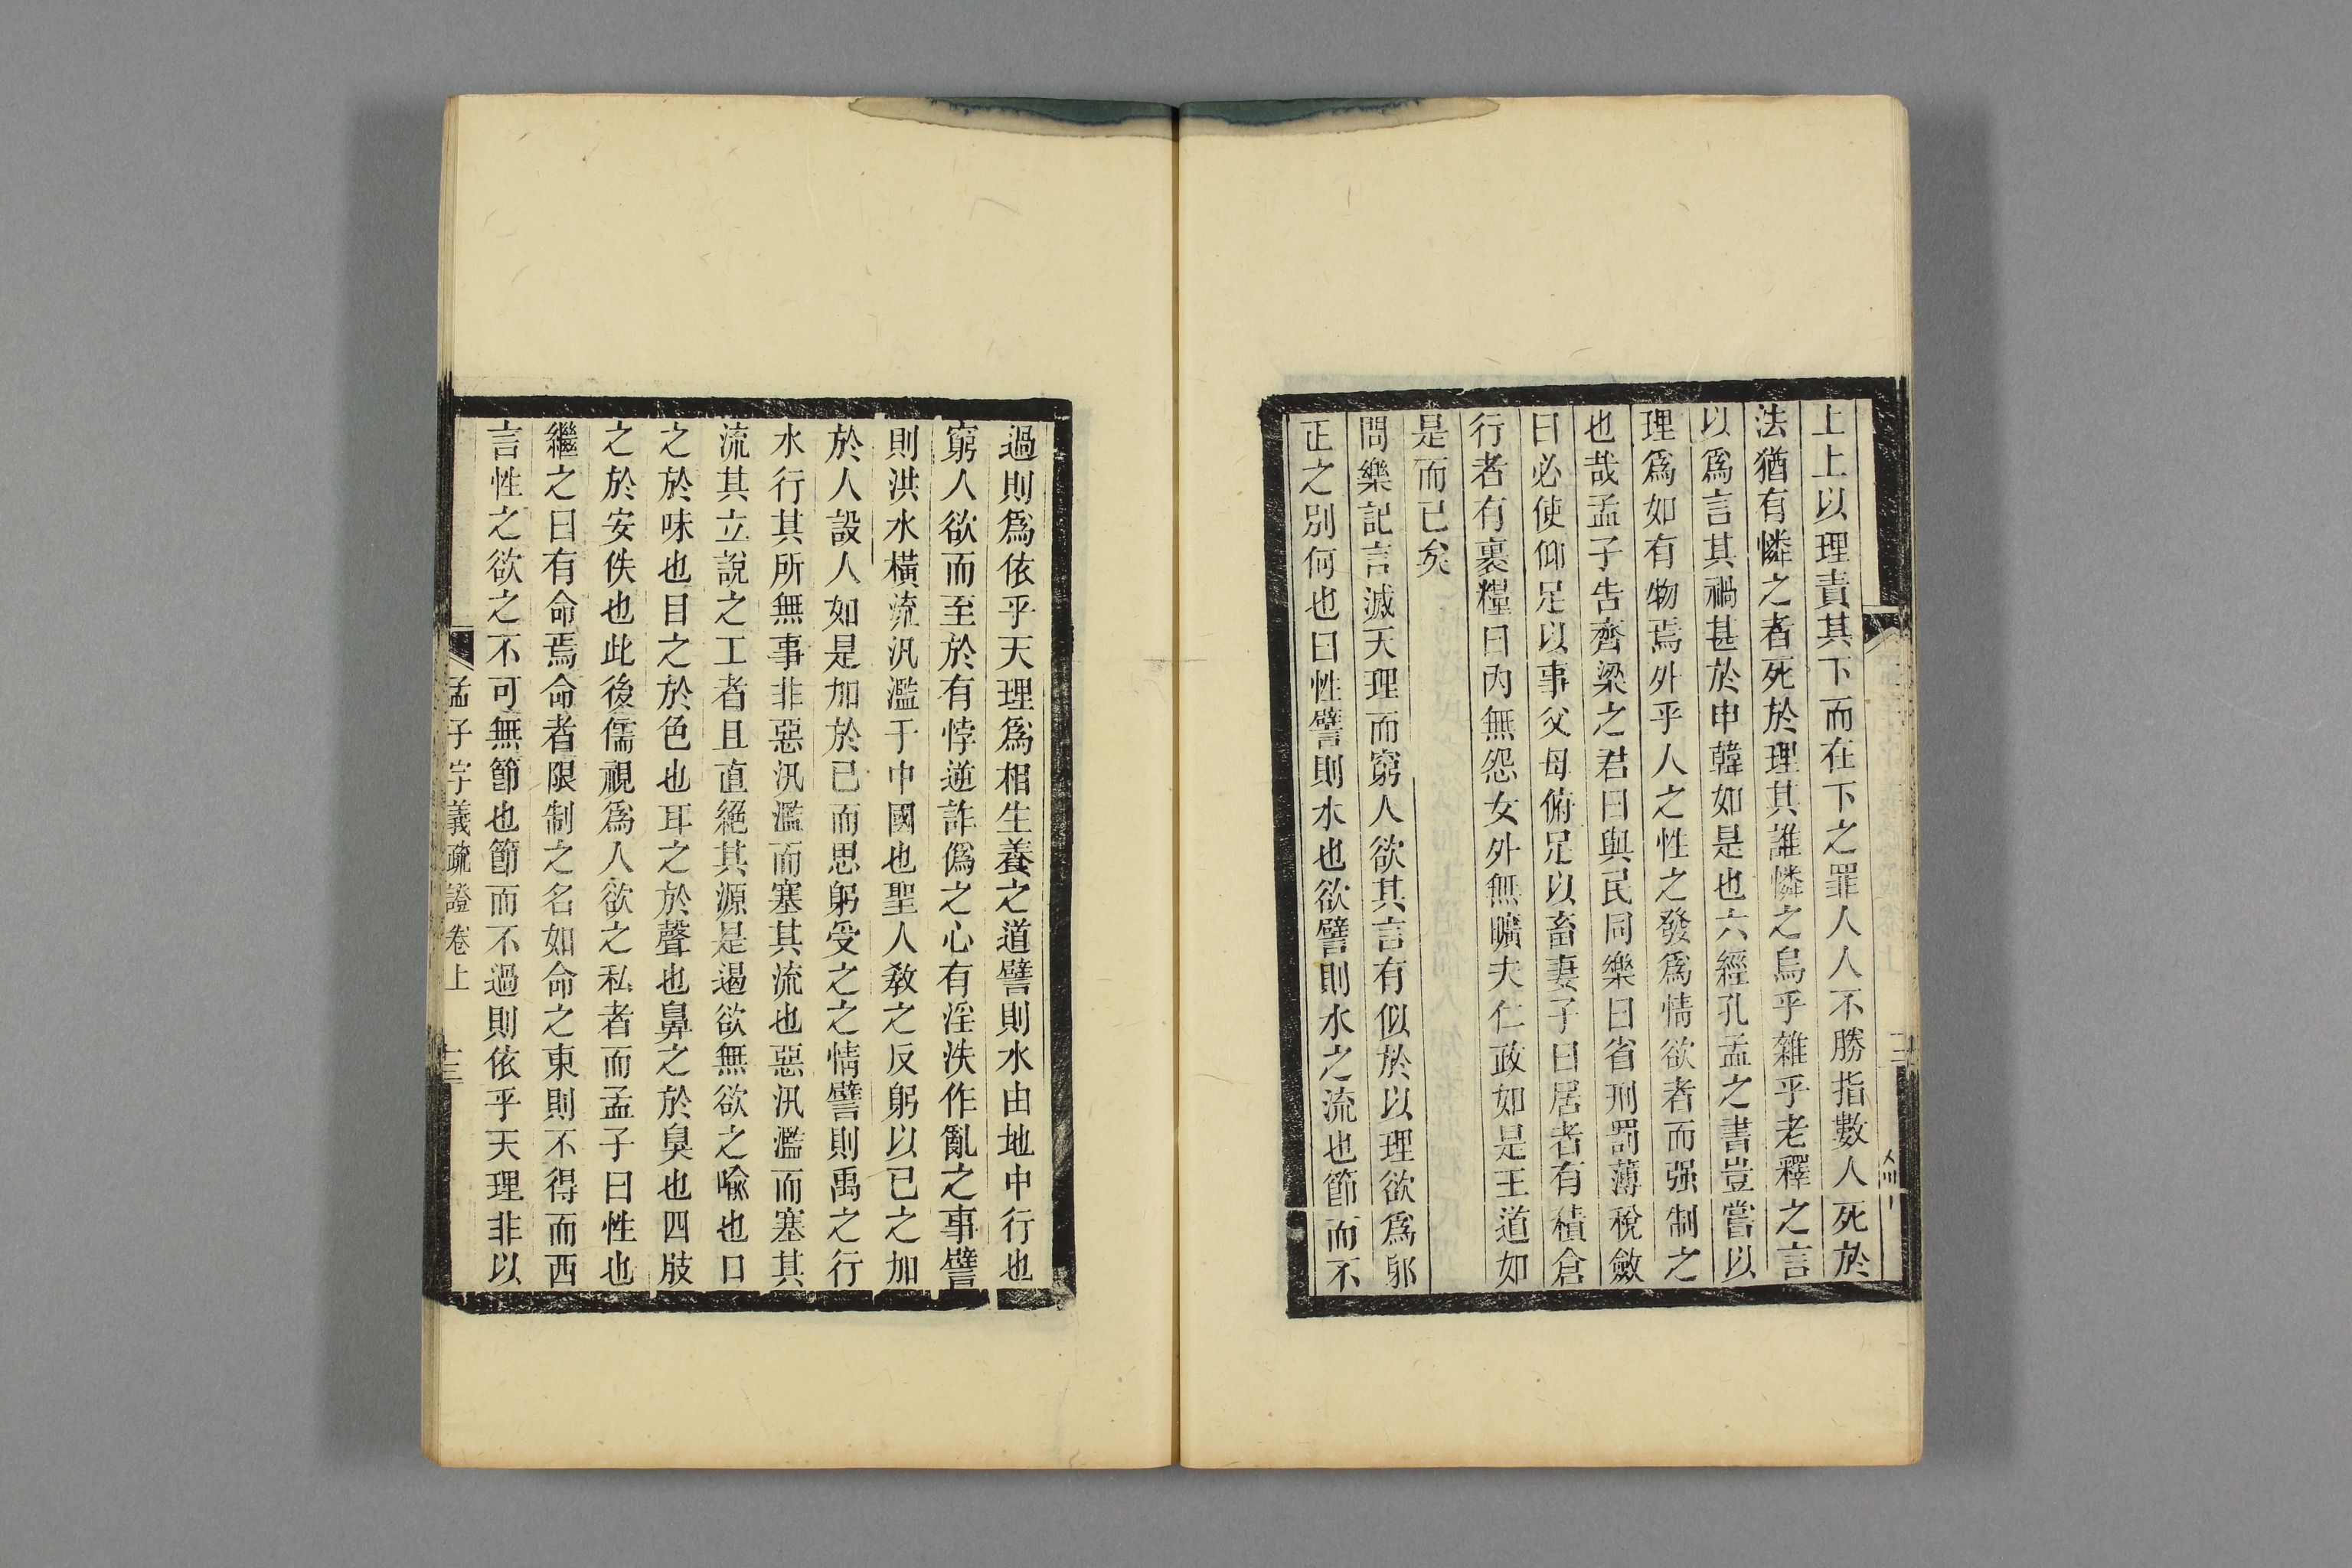 上上以理責其下而在下之罪人人不勝指數人死於
法猶有憐之者死於理其誰憐之烏乎雜乎老釋之言
以爲言其禍甚於申韓如是也六經孔孟之書豈嘗以
理爲如有物焉外乎人之性之發爲情欲者而强制之
也哉孟子告齊梁之君曰與民同樂曰省刑罰薄稅斂
曰必使仰足以事父母俯足以畜妻子曰居者有積倉
行者有裹糧曰內無怨女外無曠夫仁政如是王道如
是而已矣
問樂記言滅天理而窮人欲其言有似於以理欲爲邪
正之別何也曰性譬則水也欲譬則水之流也節而不
過則爲依乎天理爲相生養之道譬則水由地中行也
窮人欲而至於有悖逆詐僞之心有淫泆作亂之事譬
則洪水橫流汎濫于中國也聖人敎之反躬以已之加
於人設人如是加於已而思躬受之之情譬則禹之行
水行其所無事非惡汎濫而塞其流也惡汎濫而塞其
流其立說之工者且直絕其源是遏欲無欲之喻也口
之於味也目之於色也耳之於聲也鼻之於臭也四肢
之於安佚也此後儒視爲人欲之私者而孟子曰性也
繼之曰有命焉命者限制之名如命之東則不得而西
言性之欲之不可無節也節而不過則依乎天理非以
孟子字義疏證卷上 十三